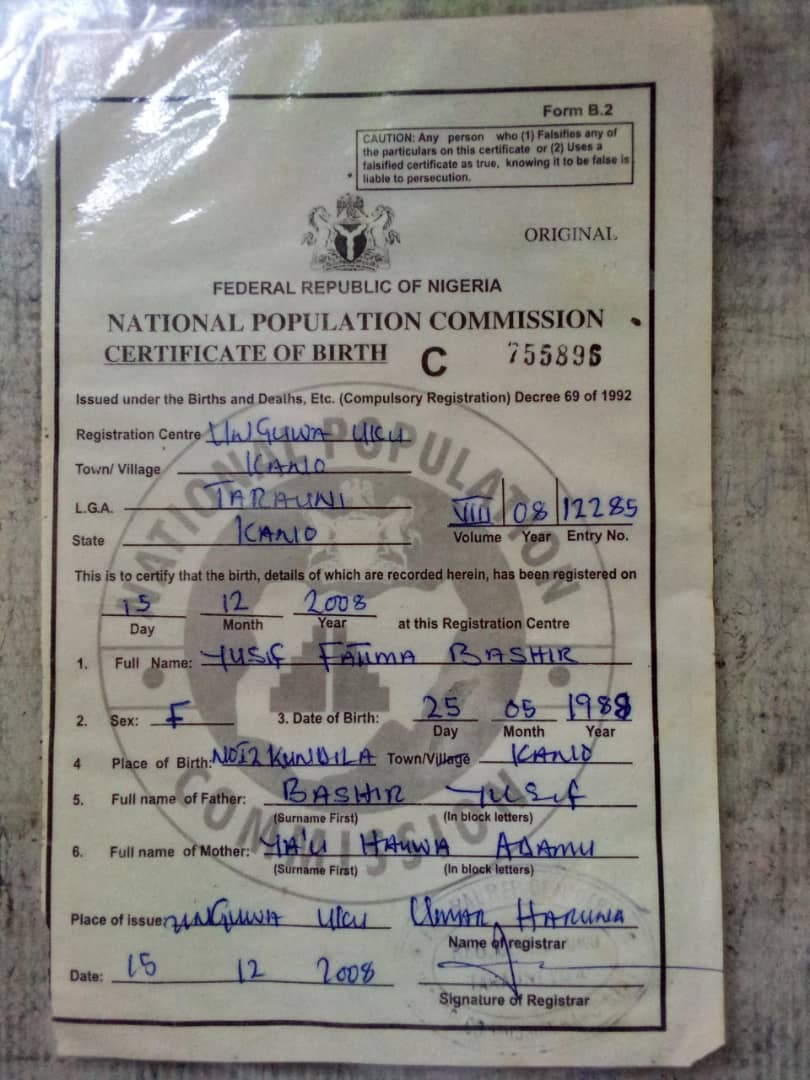 Form B.2
CAUTION: Any person who (1) Falsifies any of
the particulars on this certificate or (2) Uses a
falsified certificate as true, knowing it to be false is
liable to persecution.
ORIGINAL
FEDERAL REPUBLIC OF NIGERIA
NATIONAL POPULATION COMMISSION
CERTIFICATE OF BIRTH C 755896
Issued under the Births and Deaths, Etc. (Compulsory Registration) Decree 69 of 1992
Registration Centre UNGUWA UKU
Town/ Village KANO
L.G.A. TARAUNI
State KANO
VIII 08 12285
Volume Year Entry No.
This is to certify that the birth, details of which are recorded herein, has been registered on
15 12 2008
Day Month Year at this Registration Centre
1. Full Name: YUSIF FATIMA BASHIR
2. Sex: F 3. Date of Birth: 25 05 1988
Day Month Year
4 Place of Birth: NO12 KUNDILA Town/Village KANO
5. Full name of Father: BASHIR YUSIF
(Surname First) (In block letters)
6. Full name of Mother: YA'U HAUWA ADAMU
(Surname First) (In block letters)
Place of issue: UNGUWA UKU UMAR HARUNA
Name of registrar
Date: 15 12 2008
Signature of Registrar
NATIONAL POPULATION
COMMISSION